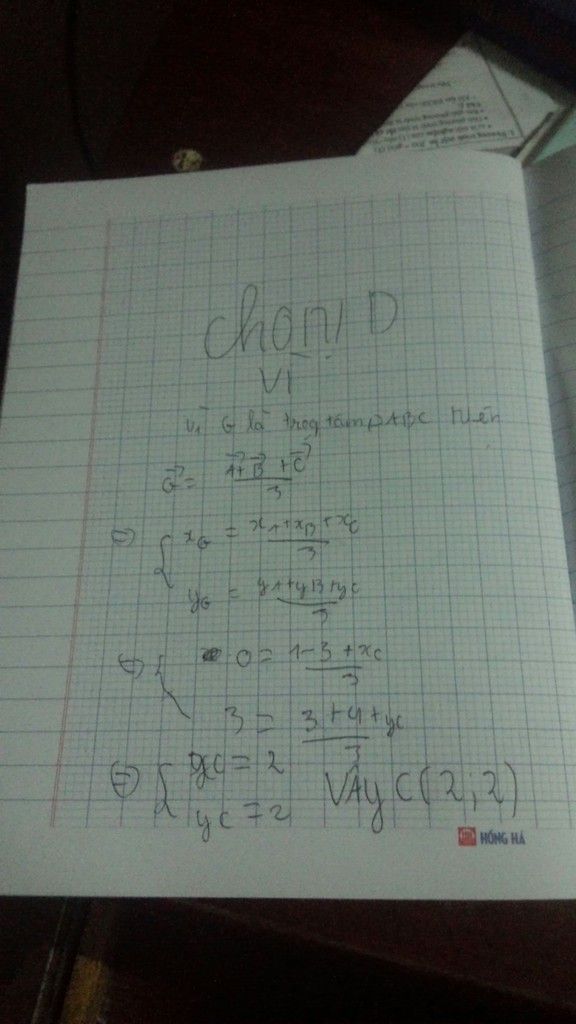 chọn D
Vì
Vì G là trog tâm ABC nên
G = A + B + C / 3
=> { xG = xA + xB + xC / 3
yG = yA + yB + yC / 3
<=> { 0 = 1 - 3 + xC / 3
3 = 3 + 4 + yC / 3
<=> { xC = 2
yC = 2
Vậy C(2; 2)
HỒNG HÀ